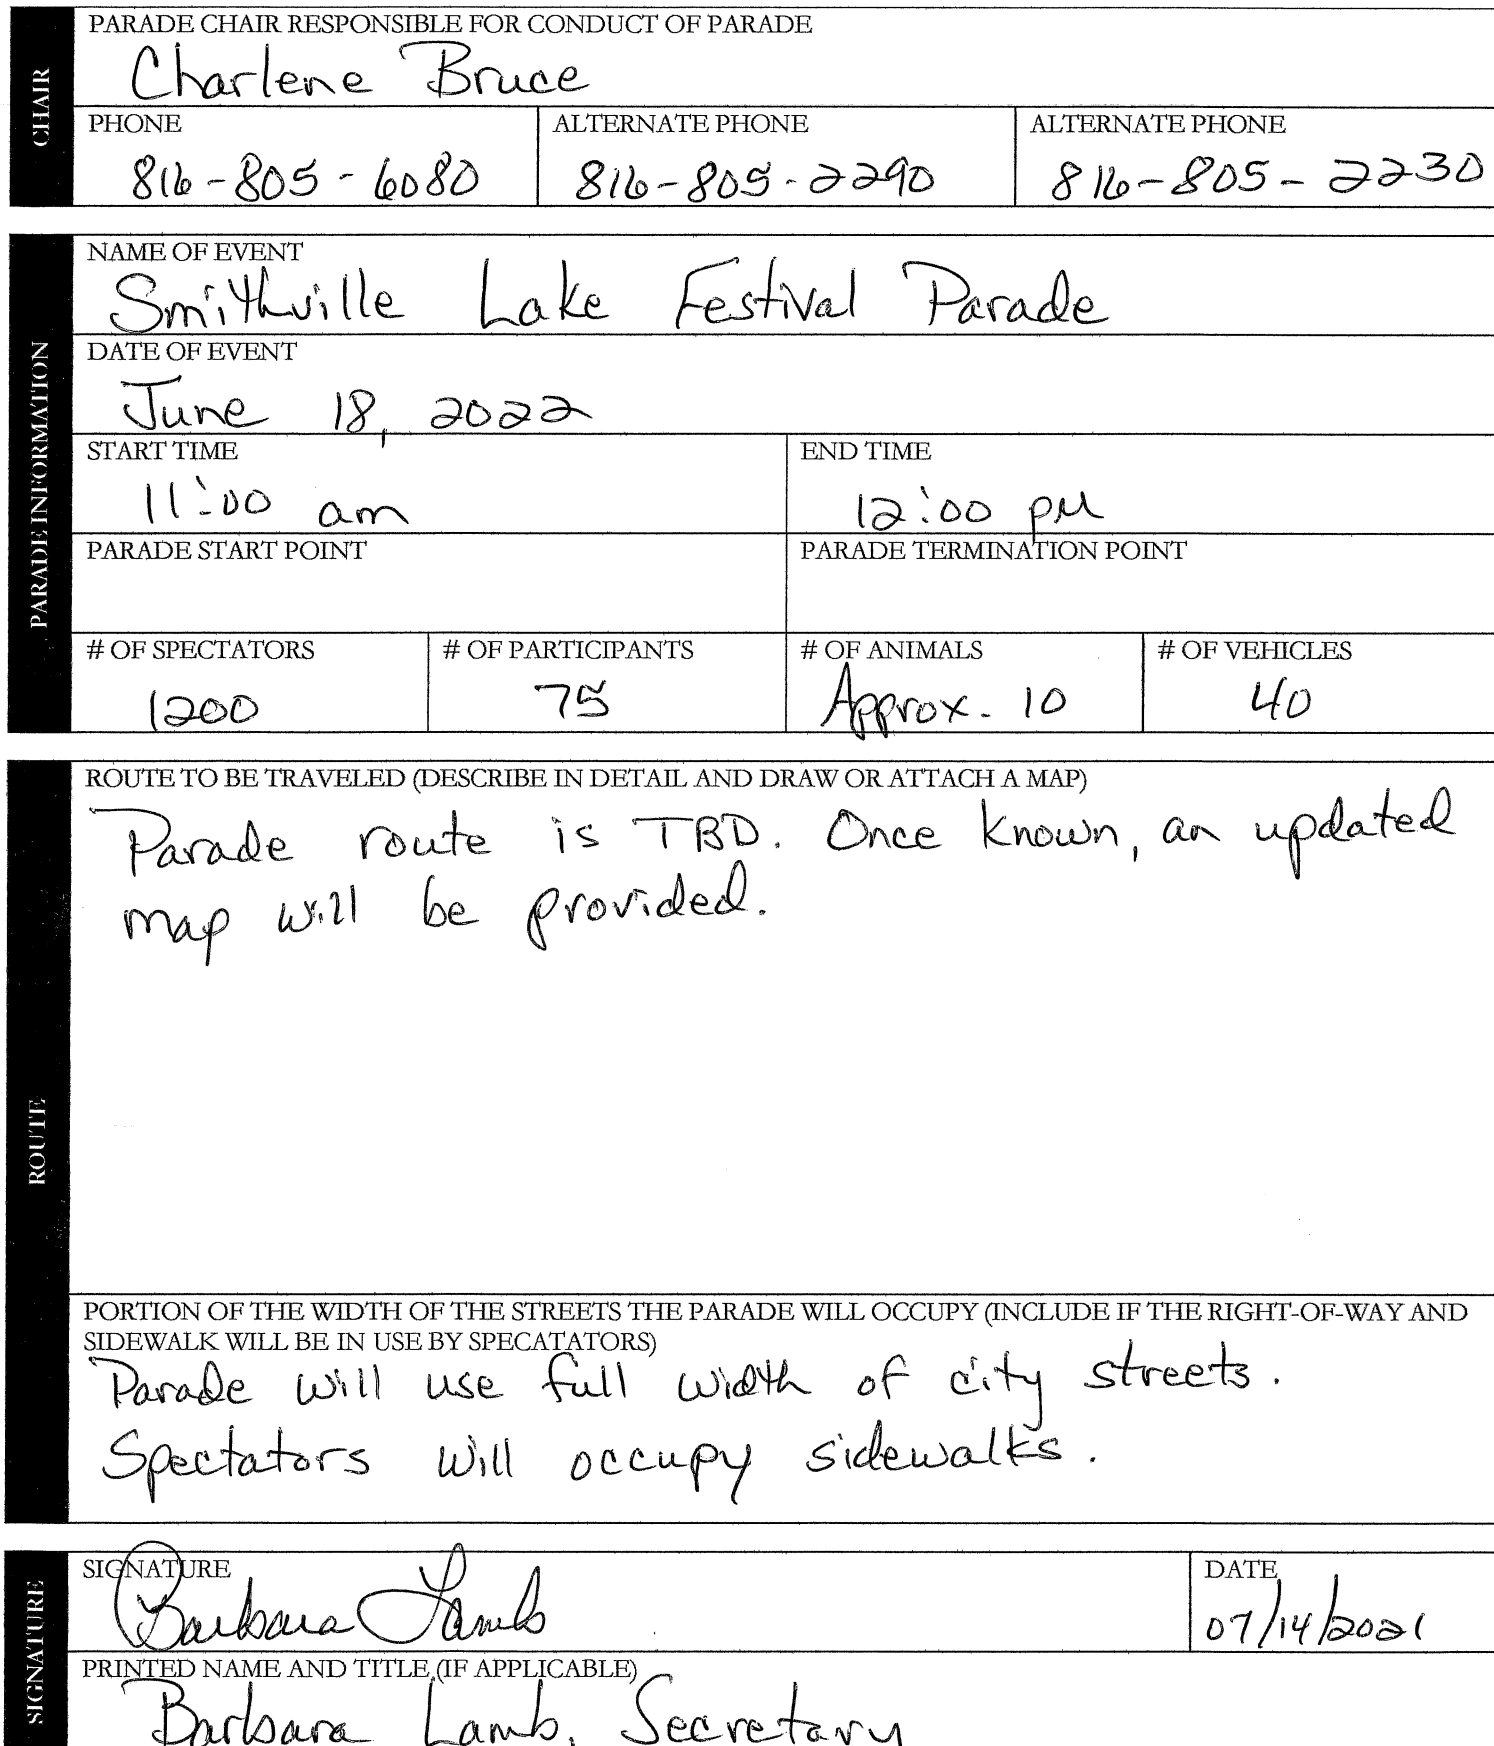 CHAIR
PARADE CHAIR RESPONSIBLE FOR CONDUCT OF PARADE
Charlene Bruce
PHONE ALTERNATE PHONE ALTERNATE PHONE
816-805-6080 816-805-2290 816-805-2230
PARADE INFORMATION
NAME OF EVENT
Smithville Lake Festival Parade
DATE OF EVENT
June 18, 2022
START TIME END TIME
11:00 am 12:00 pm
PARADE START POINT PARADE TERMINATION POINT
# OF SPECTATORS # OF PARTICIPANTS # OF ANIMALS # OF VEHICLES
1200 75 Approx. 10 40
ROUTE
ROUTE TO BE TRAVELED (DESCRIBE IN DETAIL AND DRAW OR ATTACH A MAP)
Parade route is TBD. Once known, an updated
map will be provided.
PORTION OF THE WIDTH OF THE STREETS THE PARADE WILL OCCUPY (INCLUDE IF THE RIGHT-OF-WAY AND
SIDEWALK WILL BE IN USE BY SPECATATORS)
Parade will use full width of city streets.
Spectators will occupy sidewalks.
SIGNATURE
SIGNATURE DATE
Barbara Lamb 07/14/2021
PRINTED NAME AND TITLE (IF APPLICABLE)
Barbara Lamb, Secretary